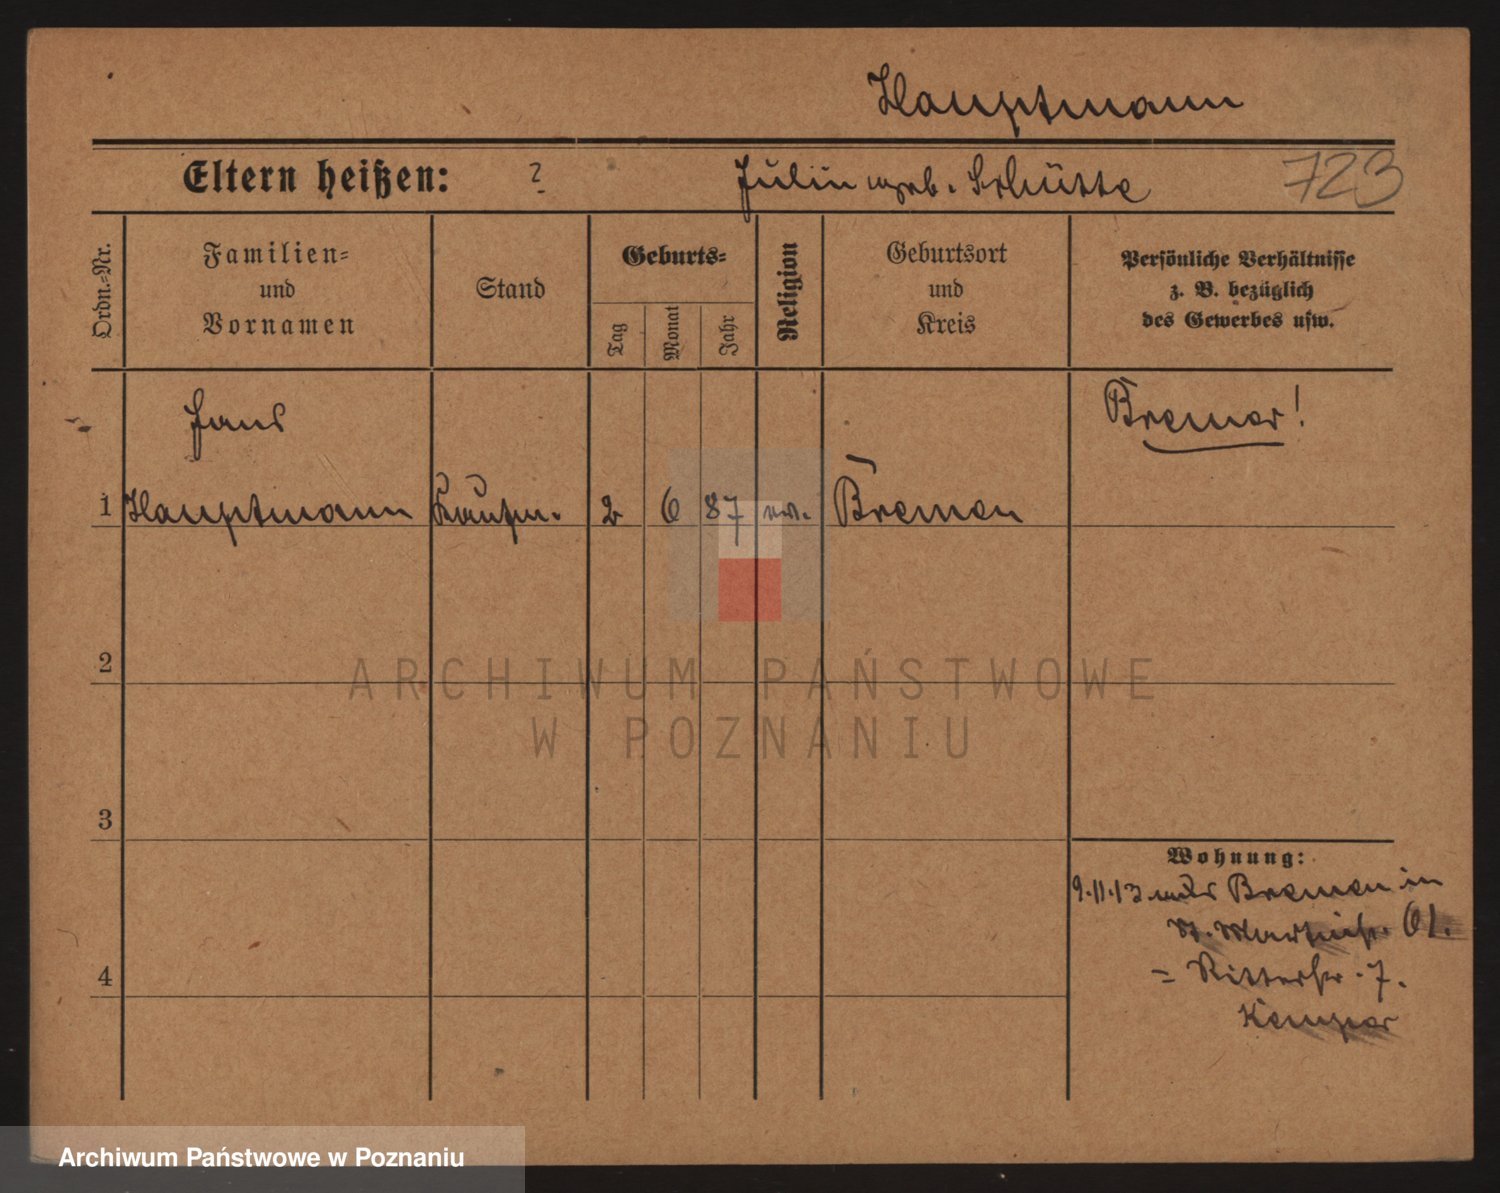 Hauptmann
Eltern heißen: ? Julie geb. Schütte 723
Ordn.=Nr.
Familien=
und
Vornamen
Stand
Geburts=
Tag
Monat
Jahr
Religion
Geburtsort
und
Kreis
Persönliche Verhältnisse
z. B. bezüglich
des Gewerbes usw.
Hans
Bremer!
1 Hauptmann Kaufm. 2 6 87 ev. Bremen
2
ARCHIWUM PAŃSTWOWE
W POZNANIU
3
Wohnung:
9.11.13 aus Bremen in
St. Martinstr. 61.
= Ritterstr. 7.
4
Kemper
Archiwum Państwowe w Poznaniu